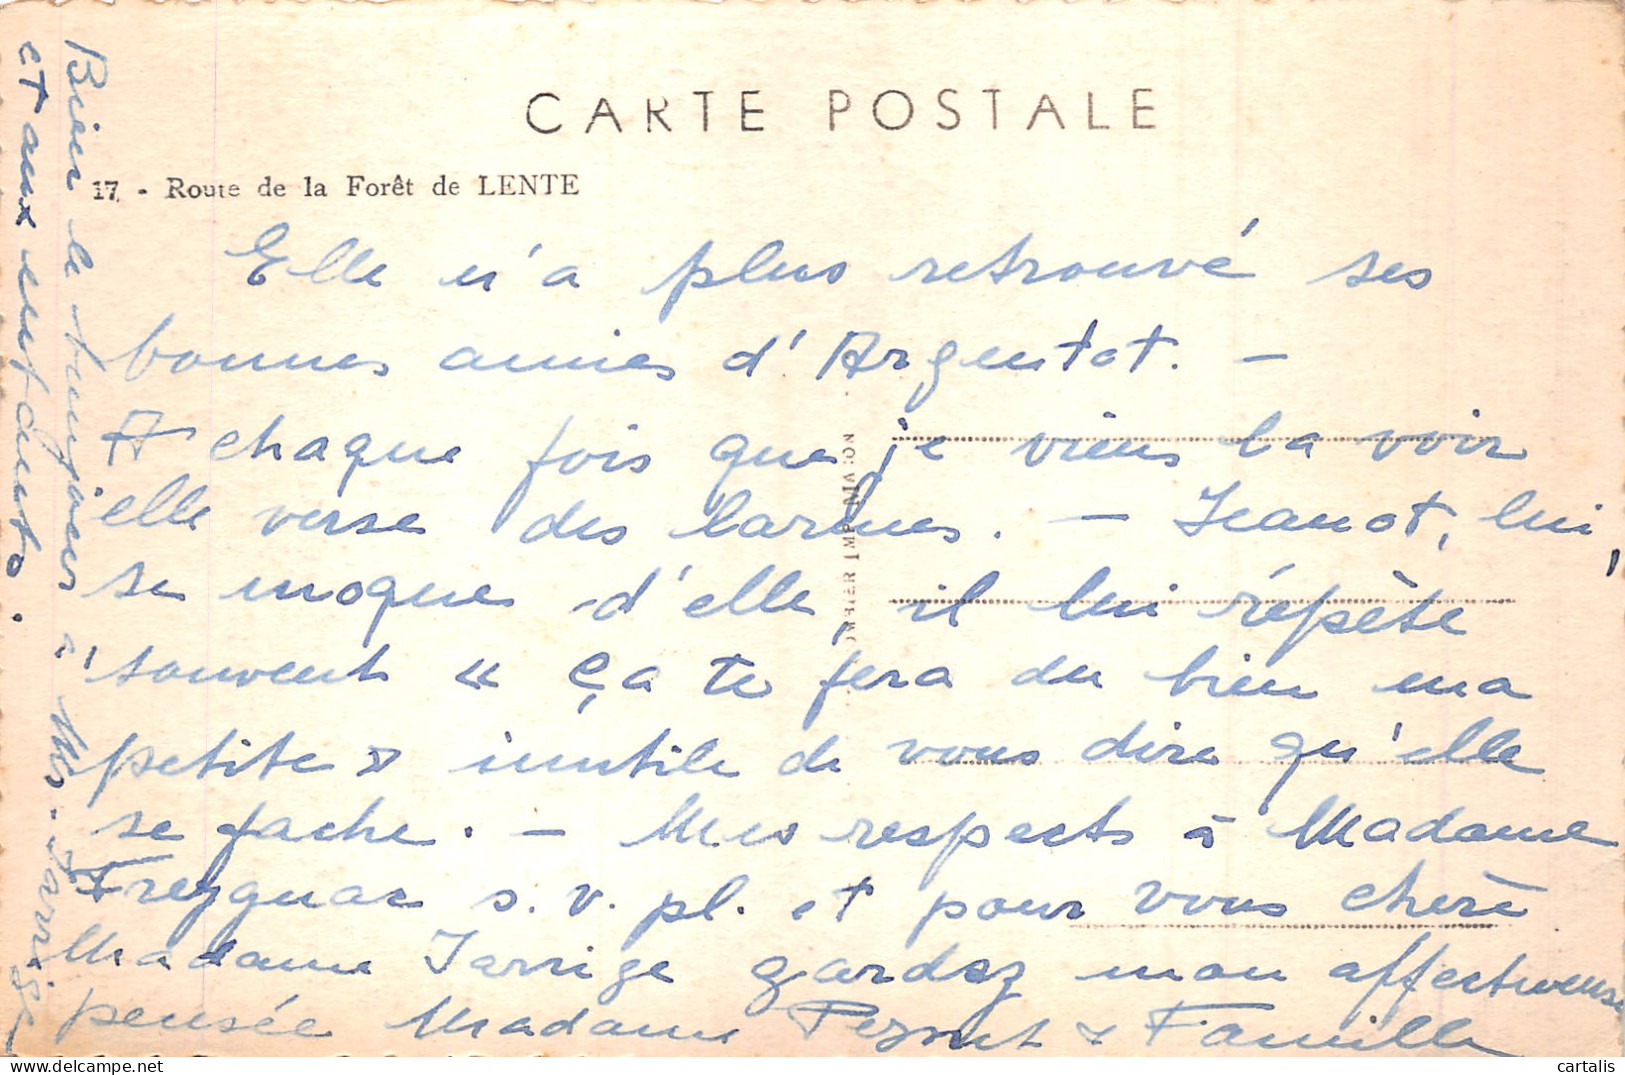 CARTE POSTALE
17. - Route de la Forêt de LENTE
Elle n'a plus retrouvé ses
bonnes amies d'Argentat. -
A chaque fois que je viens la voir
elle verse des larmes. - Jeanot, lui,
se moque d'elle, il lui répète
souvent « Ça te fera du bien ma
petite » inutile de vous dire qu'elle
se fache. - Mes respects à Madame
Freygnac s.v.pl. et pour vous chère
Madame Jarrige gardez mon affectueuse
pensée Madame & Famille
Bien le bonjour à Mr. Jarrige
et aux enfants.
IMP
cartalis